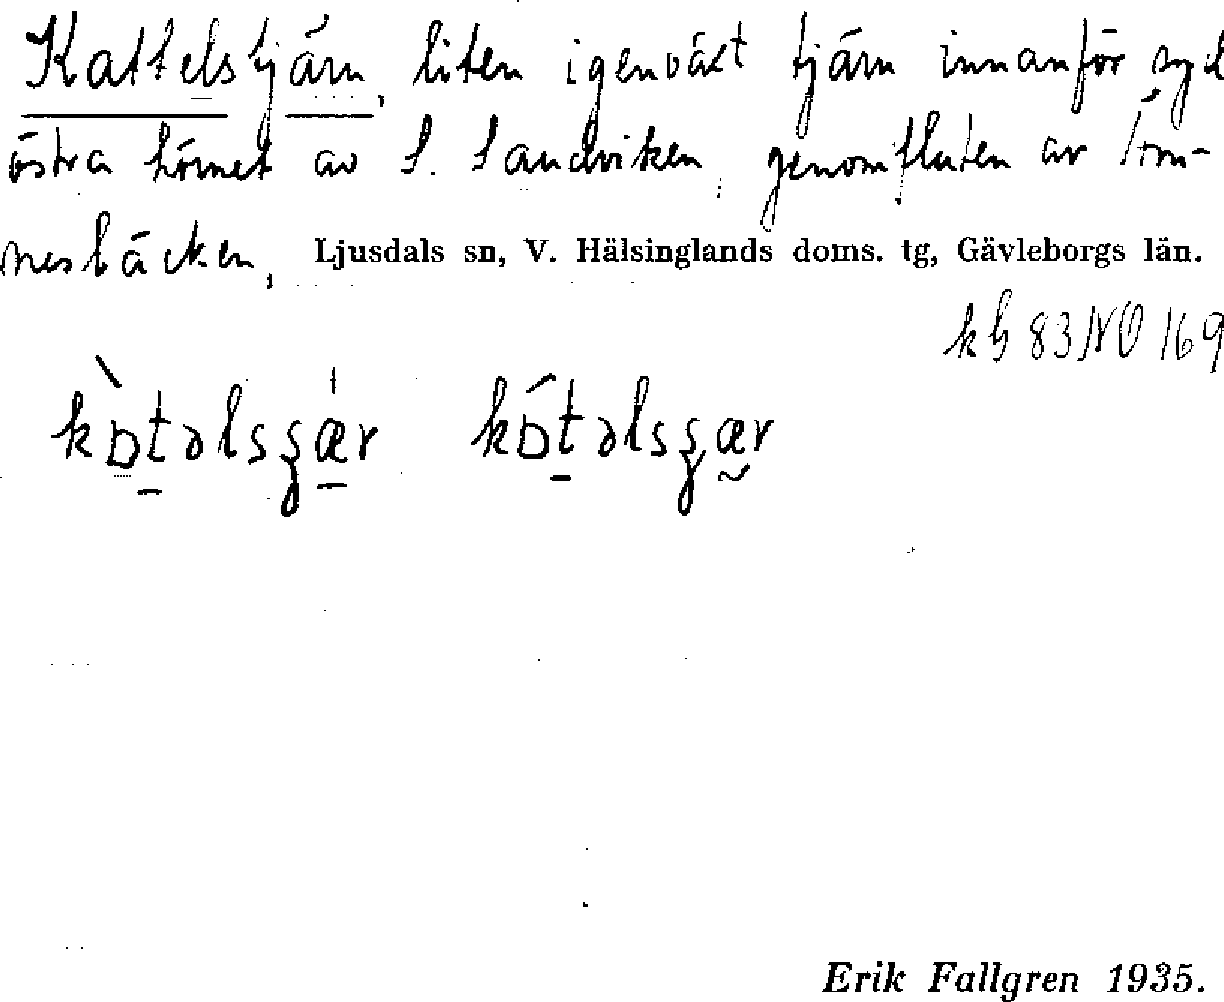 Kattelstjärn, liten igenväxt tjärn innanför syd
östra hörnet av S. Sandviken, genomfluten av Töm-
nesbäcken, Ljusdals sn, V. Hälsinglands doms. tg, Gävleborgs län.
kb 83 NO 169
Erik Fallgren 1935.